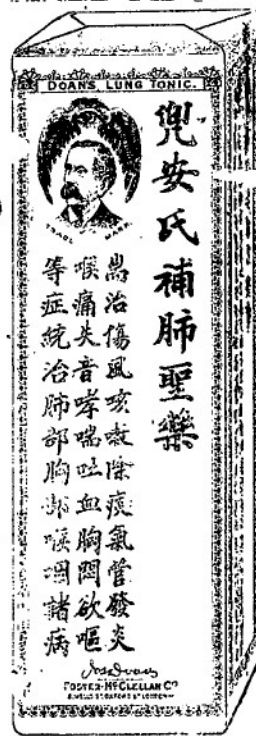 DOAN'S LUNG TONIC.
TRADE MARK
兜安氏補肺聖藥
耑治傷風咳嗽除痰氣管發炎
喉痛失音哮喘吐血胸悶欲嘔
等症統治肺部胸部喉嚨諸病
FOSTER-McCLELLAN CO